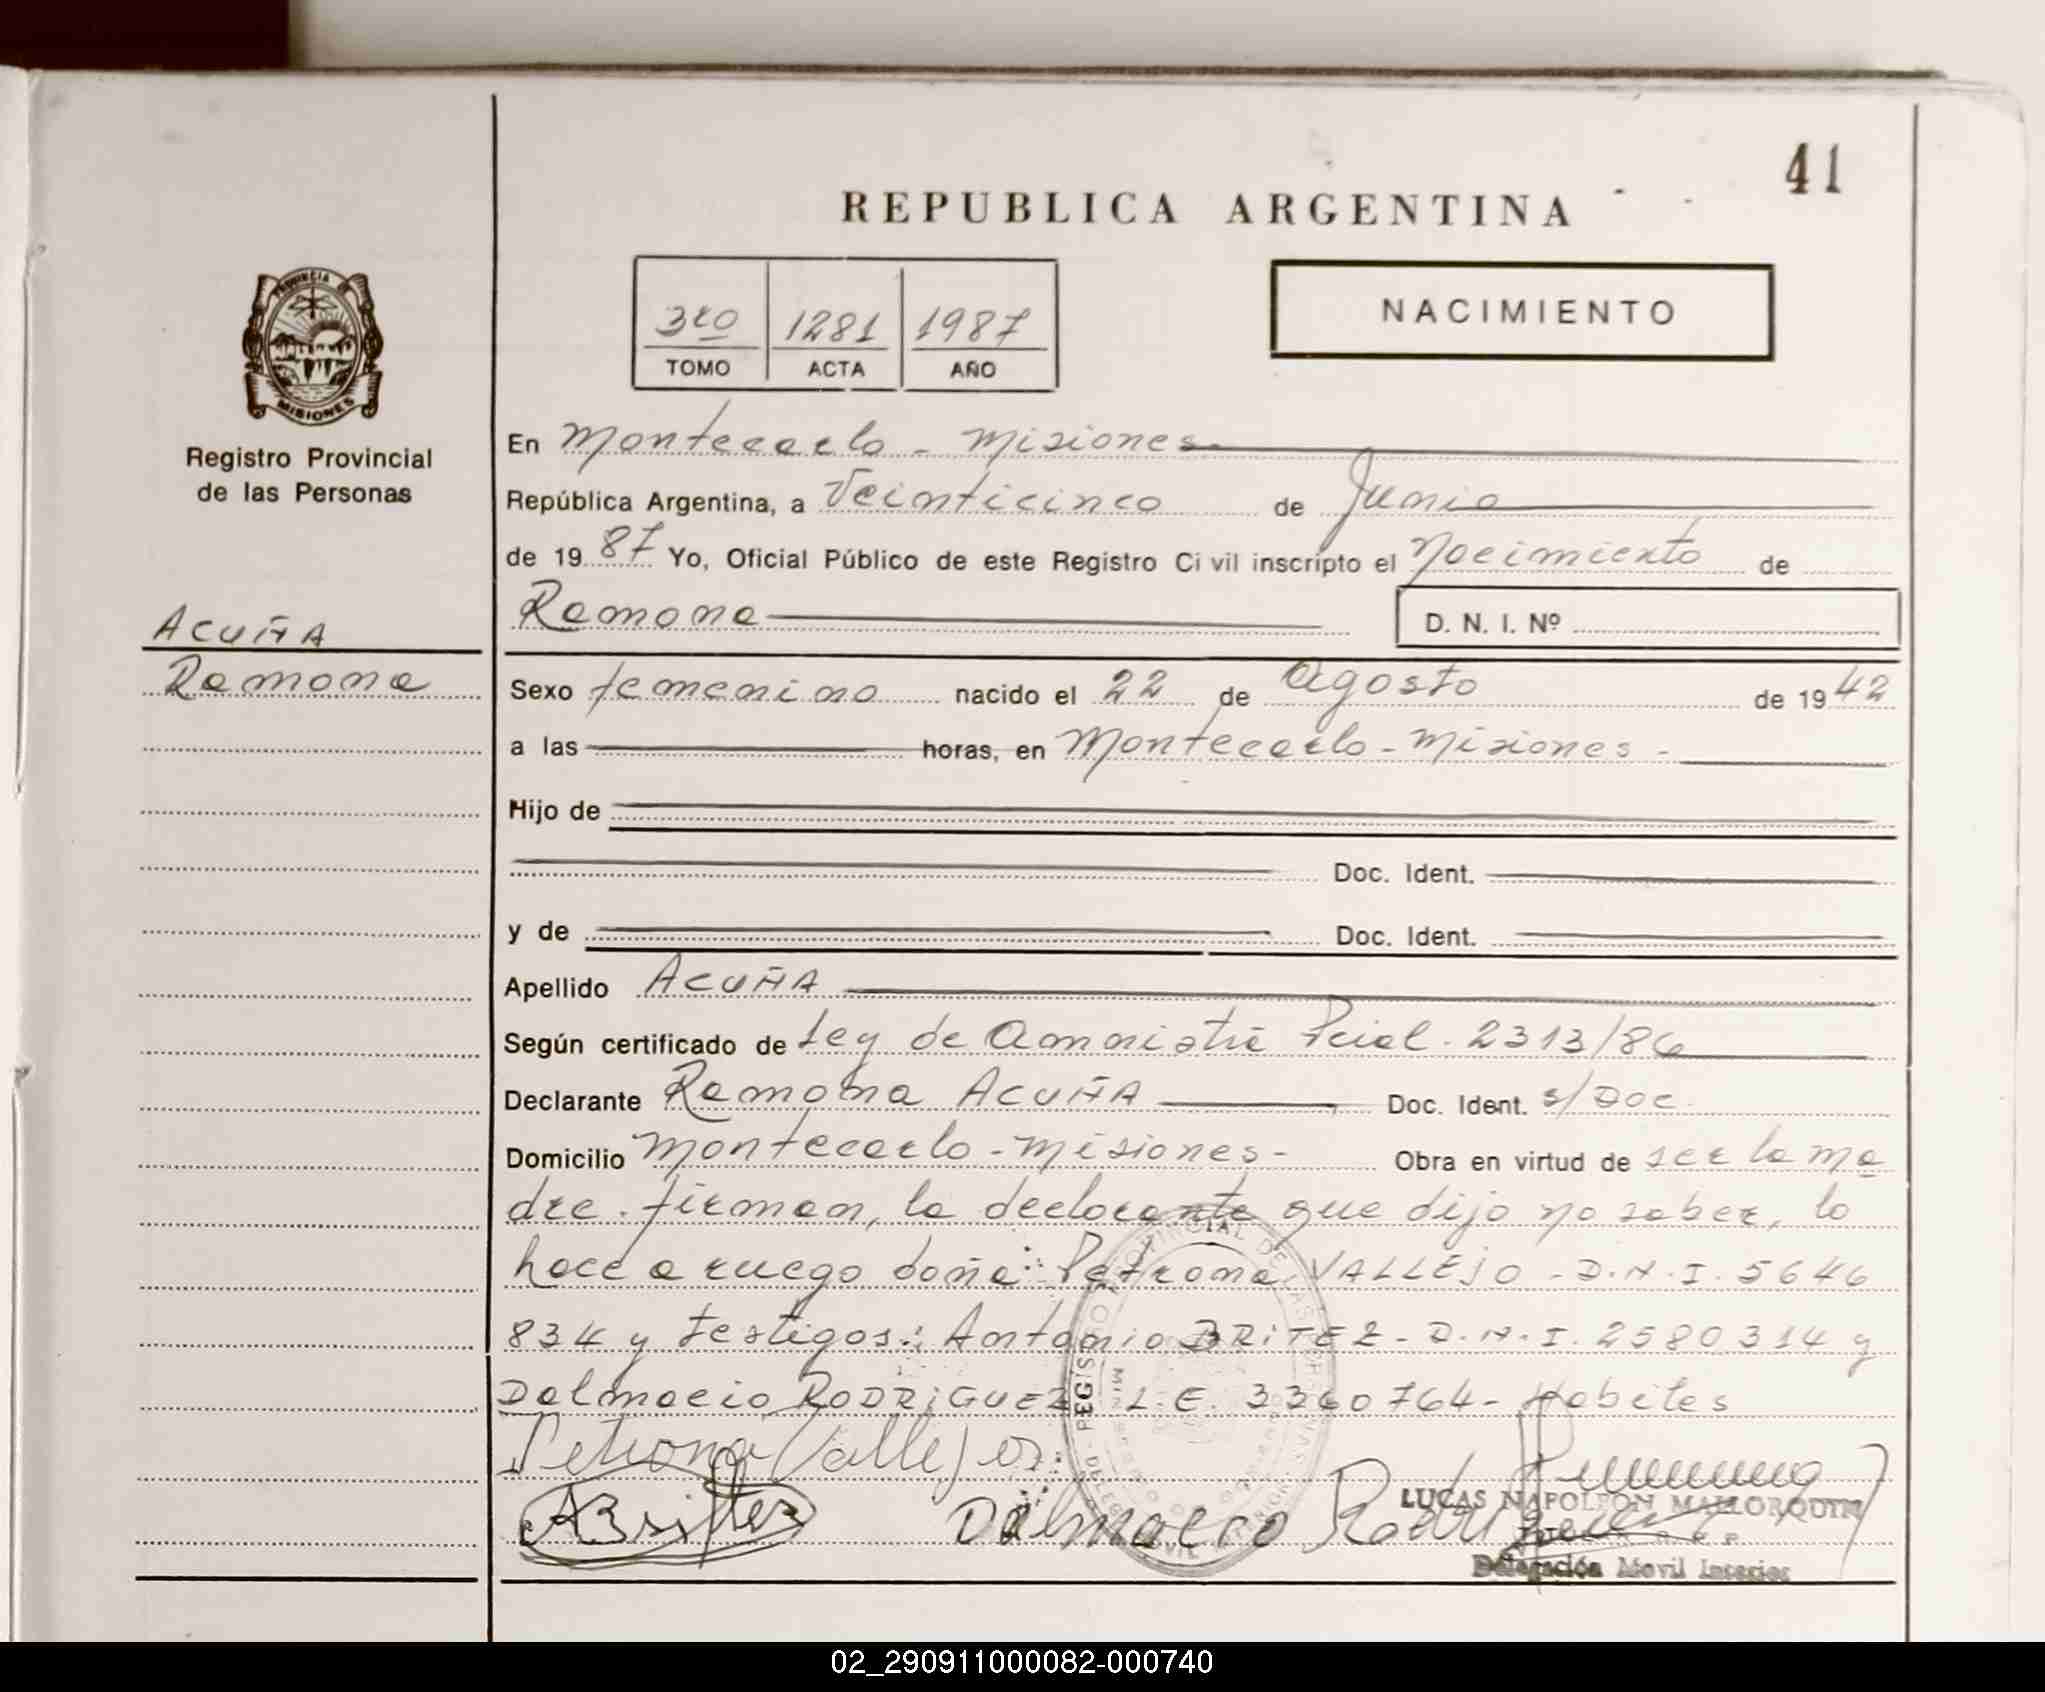 41
REPUBLICA ARGENTINA
PROVINCIA DE
MISIONES
Registro Provincial
de las Personas
3ro 1281 1987
TOMO ACTA AÑO
NACIMIENTO
En Montecarlo - Misiones
República Argentina, a Veinticinco de Junio
de 1987 Yo, Oficial Público de este Registro Civil inscripto el Nacimiento de
Ramona D. N. I. Nº
ACUÑA
Ramona
Sexo femenino nacido el 22 de Agosto de 1942
a las horas, en Montecarlo - Misiones -
Hijo de
Doc. Ident.
y de Doc. Ident.
Apellido ACUÑA
Según certificado de Ley de Amnistia Pcial. 2313/86
Declarante Ramona ACUÑA Doc. Ident. s/Doc.
Domicilio Montecarlo - Misiones - Obra en virtud de ser la ma
dre. firman, la declarante que dijo no saber, lo
hace a ruego doña: Petrona VALLEJO - D.N.I. 5646
834 y testigos: Antonio BRITEZ - D.N.I. 2580314 y
Dalmacio RODRIGUEZ L.E. 3360764 - Habiles
Petrona Vallejos
ABritez Dalmacio Rodriguez
LUCAS NAPOLEON MALLORQUIN
Delegación Movil Interior
02_290911000082-000740